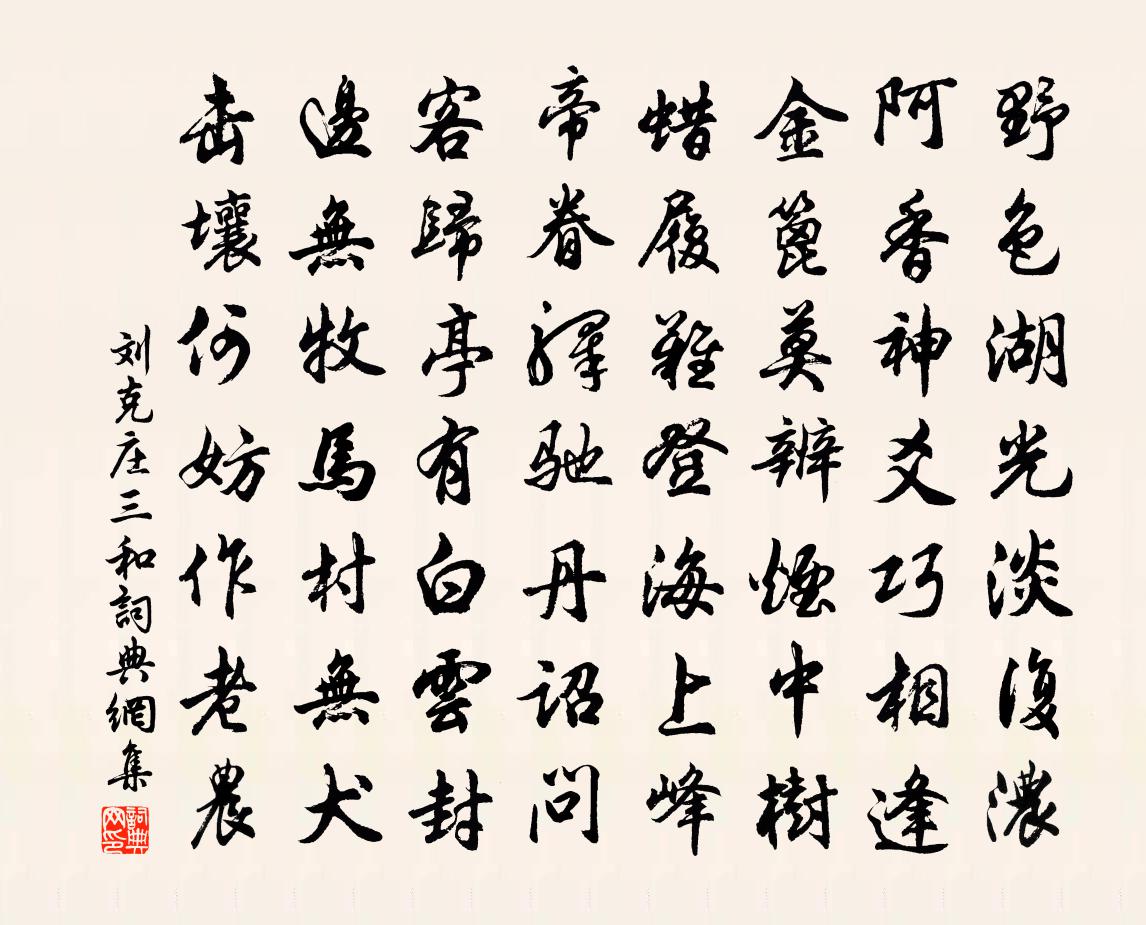 野色湖光淡復濃
阿香神爻巧相逢
金篦莫辨煙中樹
蜡履難登海上峰
帝眷驛馳丹詔問
客歸亭有白雲封
邊無牧馬村無犬
击壤何妨作老農
刘克庄三和詞典網集
詞典网印